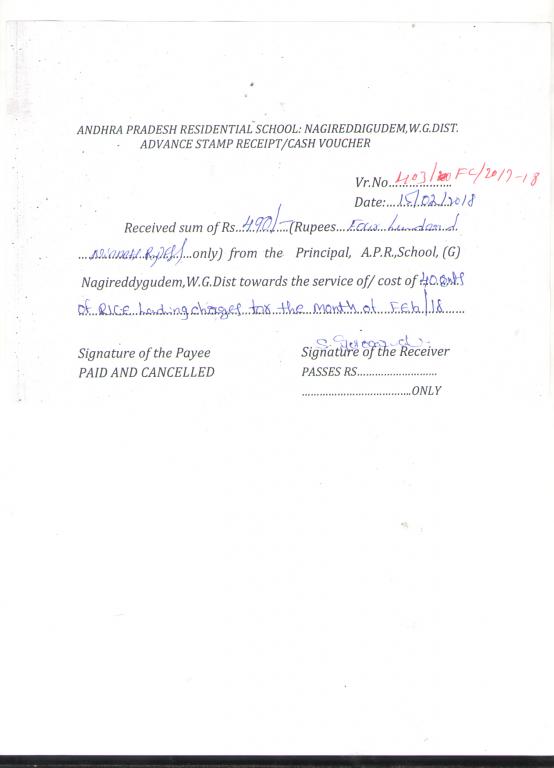 ANDHRA PRADESH RESIDENTIAL SCHOOL: NAGIREDDIGUDEM,W.G.DIST.
ADVANCE STAMP RECEIPT/CASH VOUCHER
Vr.No....403/ FC/2017-18
Date:...15/02/2018
Received sum of Rs...490/-....(Rupees...Four hundred
...only) from the Principal, A.P.R.,School, (G)
Nagireddygudem,W.G.Dist towards the service of/ cost of
of RICE charges for the month of FEb/18
Signature of the Payee
Signature of the Receiver
PAID AND CANCELLED
PASSES RS...........................
......................................ONLY